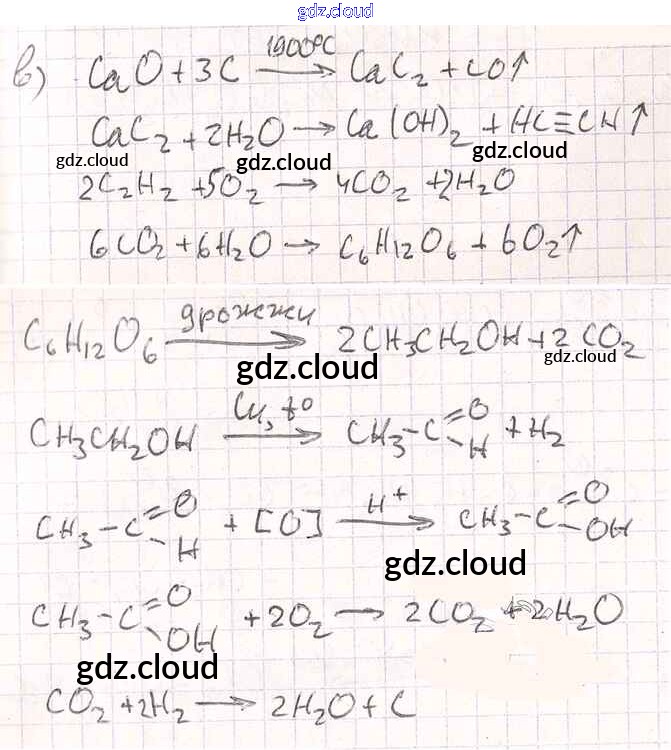 gdz.cloud
в) CaO + 3C —1900°C→ CaC₂ + CO↑
CaC₂ + 2H₂O → Ca(OH)₂ + HC≡CH↑
gdz.cloud gdz.cloud gdz.cloud
2C₂H₂ + 5O₂ → 4CO₂ + 2H₂O
6CO₂ + 6H₂O → C₆H₁₂O₆ + 6O₂↑
C₆H₁₂O₆ —дрожжи→ 2CH₃CH₂OH + 2CO₂
gdz.cloud gdz.cloud
CH₃CH₂OH —Cu, t°→ CH₃–C(=O)–H + H₂
CH₃–C(=O)–H + [O] —H⁺→ CH₃–C(=O)–OH
gdz.cloud
CH₃–C(=O)–OH + 2O₂ → 2CO₂ + 2H₂O
gdz.cloud
CO₂ + 2H₂ → 2H₂O + C